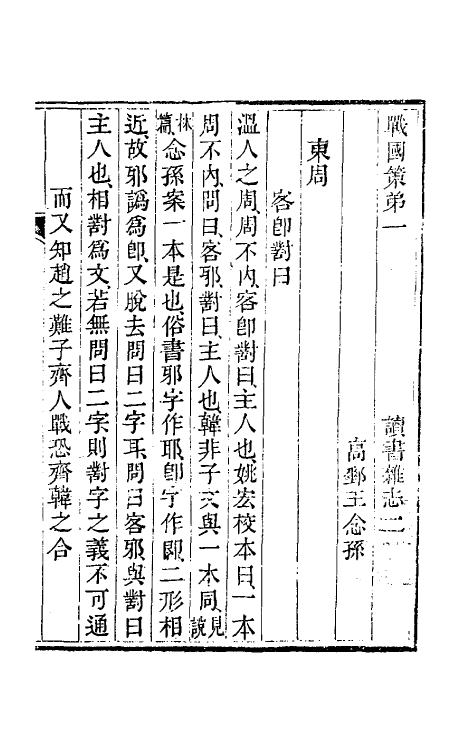 戰國策弟一　讀書雜志二
高郵王念孫
東周
客卽對曰
溫人之周周不內客卽對曰主人也姚宏校本曰一本
周不內問曰客邪對曰主人也韓非子文與一本同見說
林篇念孫案一本是也俗書邪字作耶卽字作即二形相
近故邪譌爲卽又脫去問曰二字耳問曰客邪與對曰
主人也相對爲文若無問曰二字則對字之義不可通
而又知趙之難子齊人戰恐齊韓之合